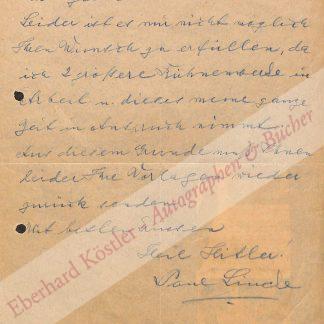 Leider ist es mir nicht möglich
Ihren Wunsch zu erfüllen, da
ich 2 größere Bühnenwerke in
Arbeit u. dieses meine ganze
Zeit in Anspruch nimmt.
Aus diesem Grunde muß Ihnen
leider Ihre Vorlagen wieder
zurück senden.
Mit besten Grüssen
Heil Hitler.
Paul Lincke
Eberhard Köstler Autographen & Bücher